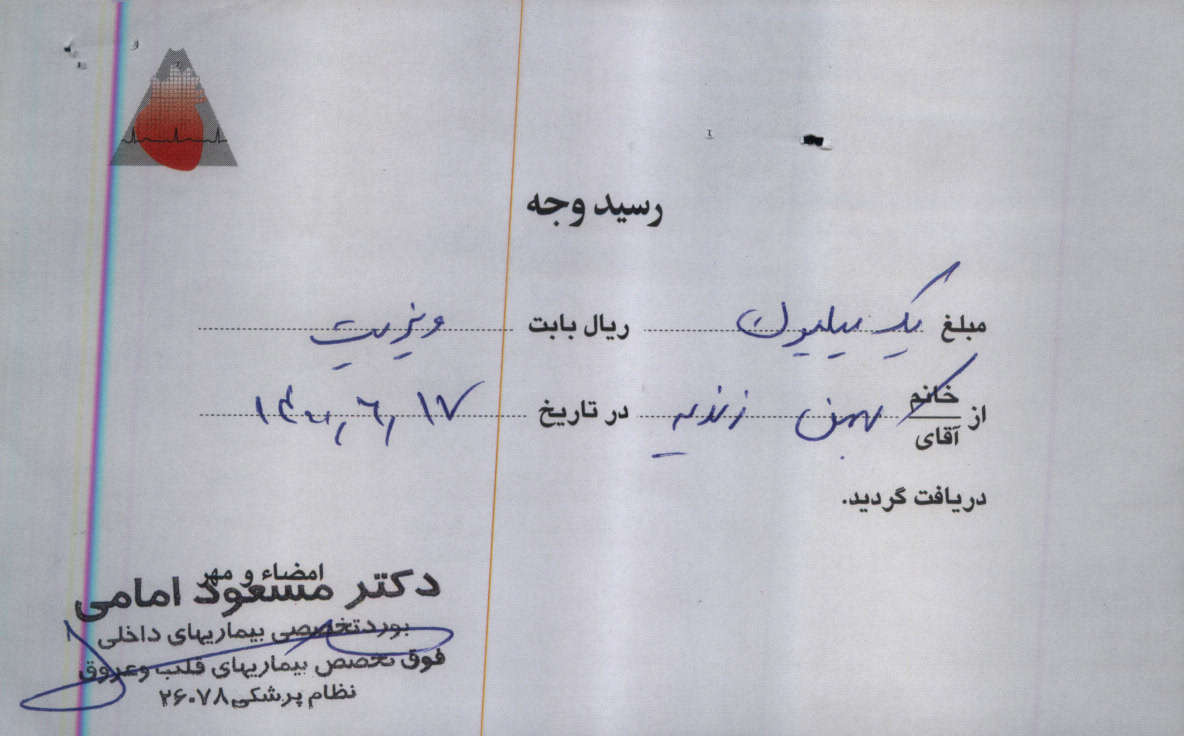 رسید وجه
مبلغ یک میلیون ریال بابت ویزیت
از خانم آقای بهمن زندیه در تاریخ ۱۴۰۰,۶,۱۷
دریافت گردید.
امضاء و مهر
دکتر مسعود امامی
بورد تخصصی بیماریهای داخلی
فوق تخصص بیماریهای قلب وعروق
نظام پزشکی ۲۶۰۷۸